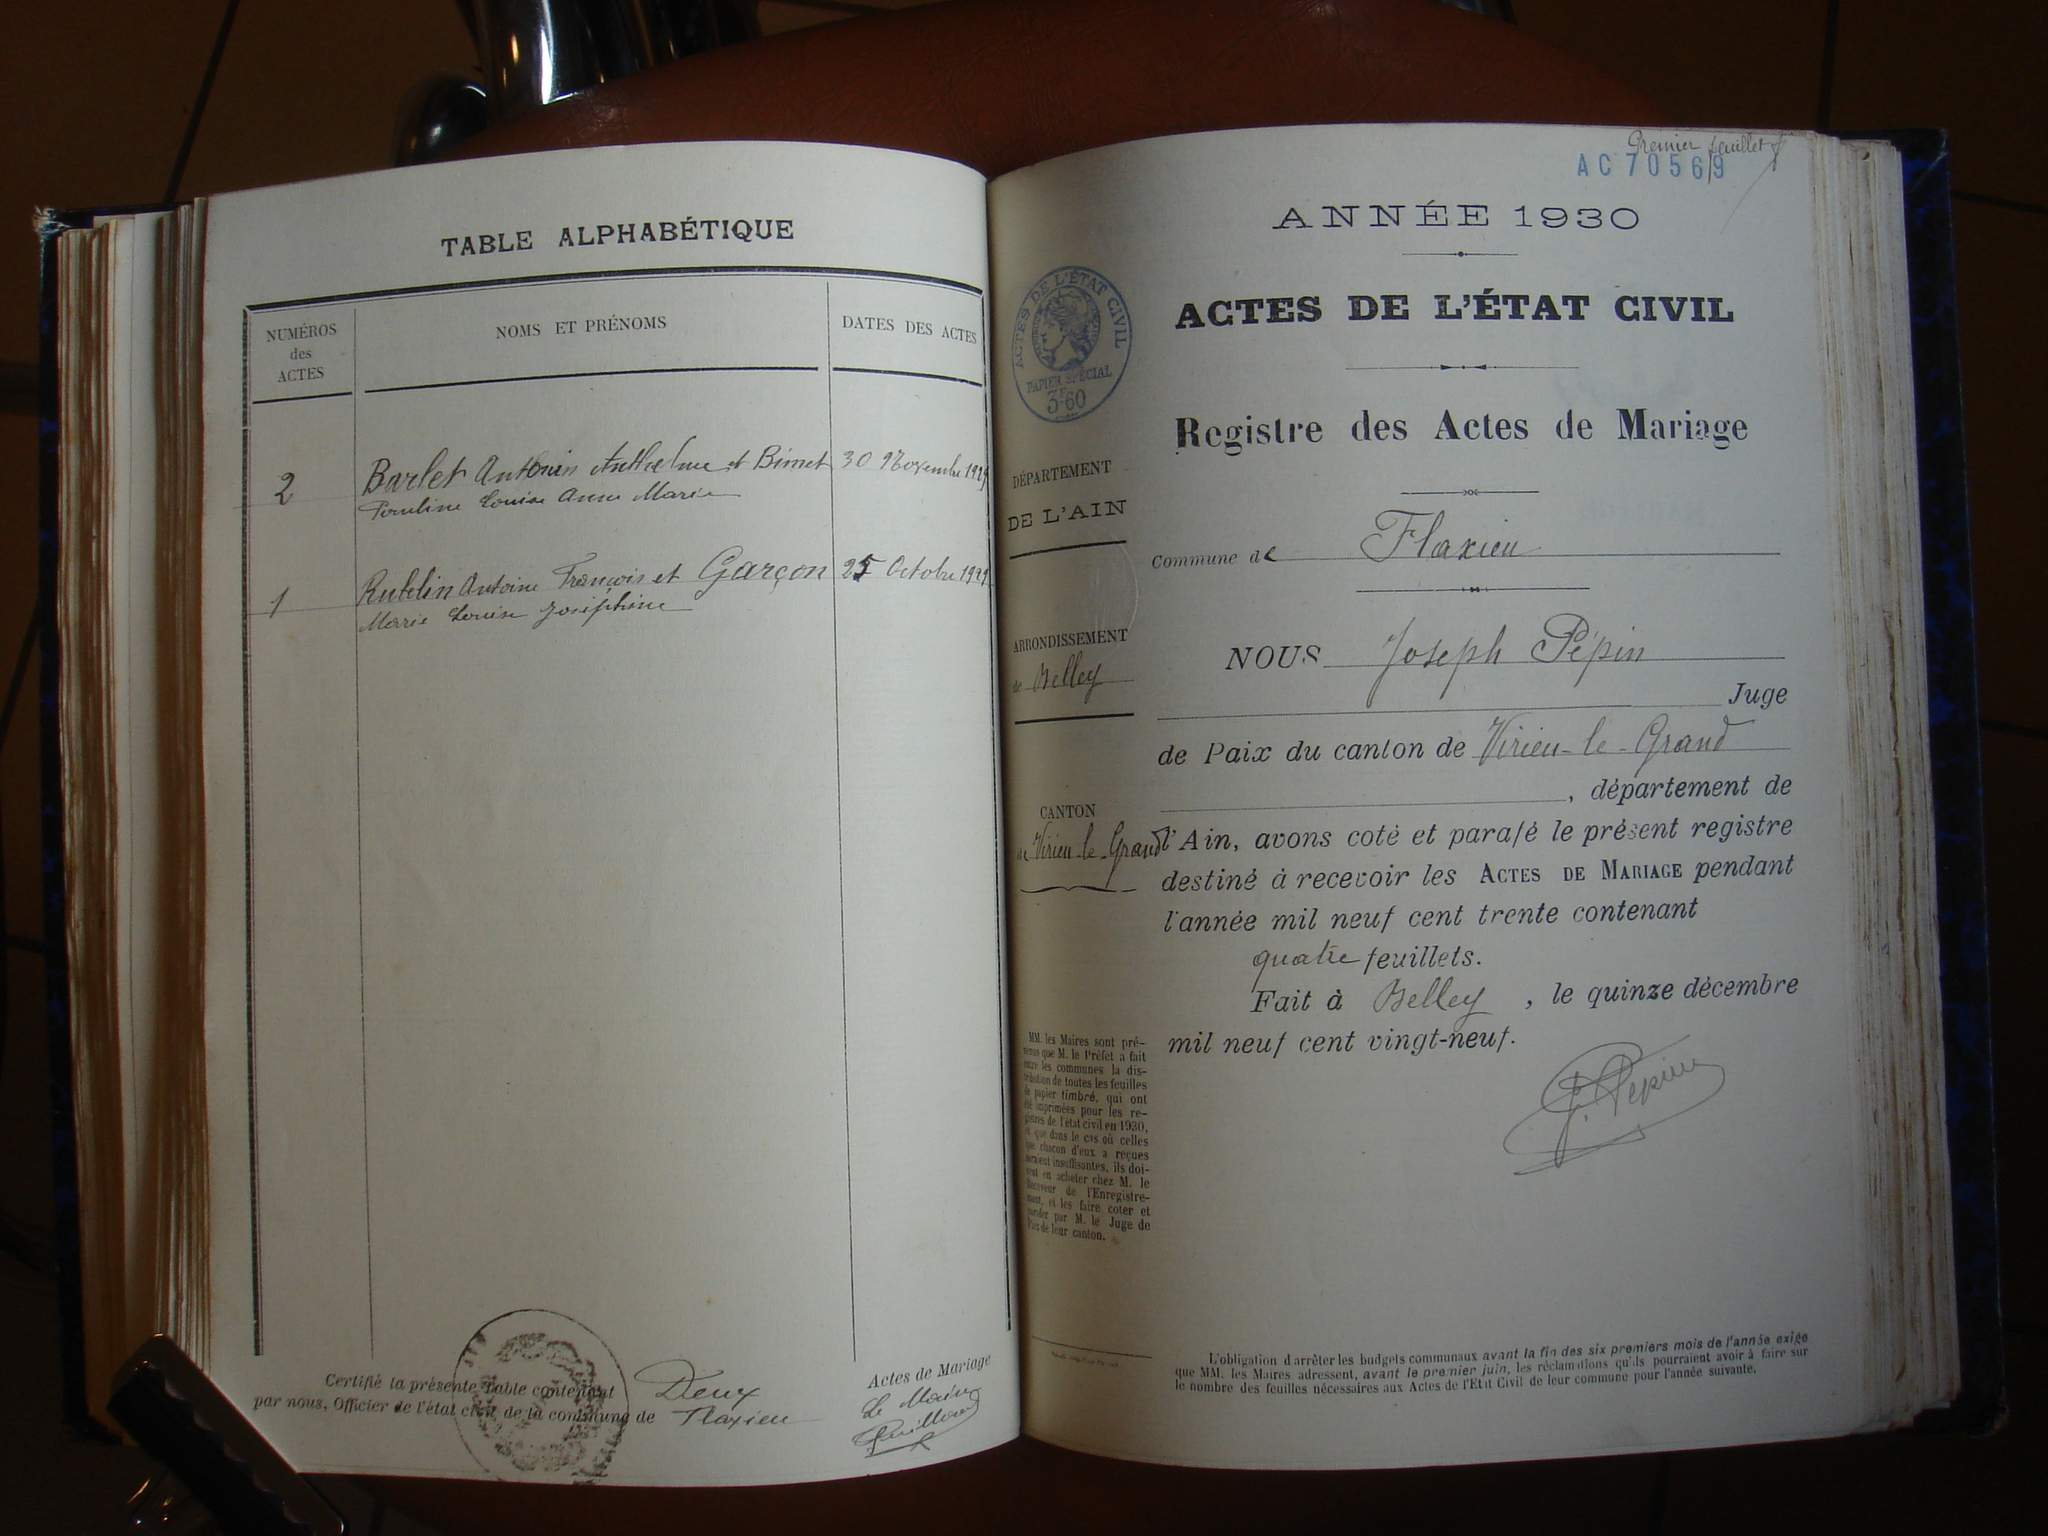 TABLE ALPHABÉTIQUE
NUMÉROS
des
ACTES
NOMS ET PRÉNOMS
DATES DES ACTES
2
Barlet Antonin Anthelme et Bimet 30 Novembre 1929
Pauline Louise Anne Marie
1
Rubelin Antoine François et Garçon 25 Octobre 1929
Marie Louise Joséphine
Certifié la présente Table contenant Deux Actes de Mariage
par nous, Officier de l'état civil de la commune de Flaxieu
Le Maire
Premier feuillet
AC 70569
ANNÉE 1930
ACTES DE L'ÉTAT CIVIL
ACTES DE L'ÉTAT CIVIL
PAPIER SPÉCIAL
3F60
Registre des Actes de Mariage
DÉPARTEMENT
DE L'AIN
Commune de Flaxieu
ARRONDISSEMENT
de Belley
NOUS Joseph Pépin
Juge
de Paix du canton de Virieu-le-Grand
, département de
CANTON
de Virieu-le-Grand
l'Ain, avons coté et parafé le présent registre
destiné à recevoir les ACTES DE MARIAGE pendant
l'année mil neuf cent trente contenant
quatre feuillets.
Fait à Belley, le quinze décembre
mil neuf cent vingt-neuf.
J. Pépin
MM. les Maires sont pré-
venus que M. le Préfet a fait
entre les communes la dis-
tribution de toutes les feuilles
de papier timbré, qui ont
été imprimées pour les re-
gistres de l'état civil en 1930,
et que dans le cas où celles
que chacun d'eux a reçues
seraient insuffisantes, ils doi-
vent en acheter chez M. le
Receveur de l'Enregistre-
ment, et les faire coter et
parafer par M. le Juge de
Paix de leur canton.
L'obligation d'arrêter les budgets communaux avant la fin des six premiers mois de l'année exige
que MM. les Maires adressent, avant le premier juin, les réclamations qu'ils pourraient avoir à faire sur
le nombre des feuilles nécessaires aux Actes de l'Etat Civil de leur commune pour l'année suivante.